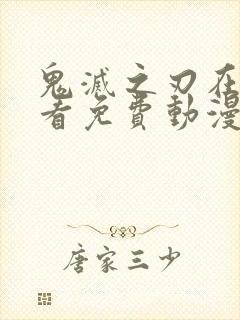 鬼滅之刃在
看免費動漫
唐家三少